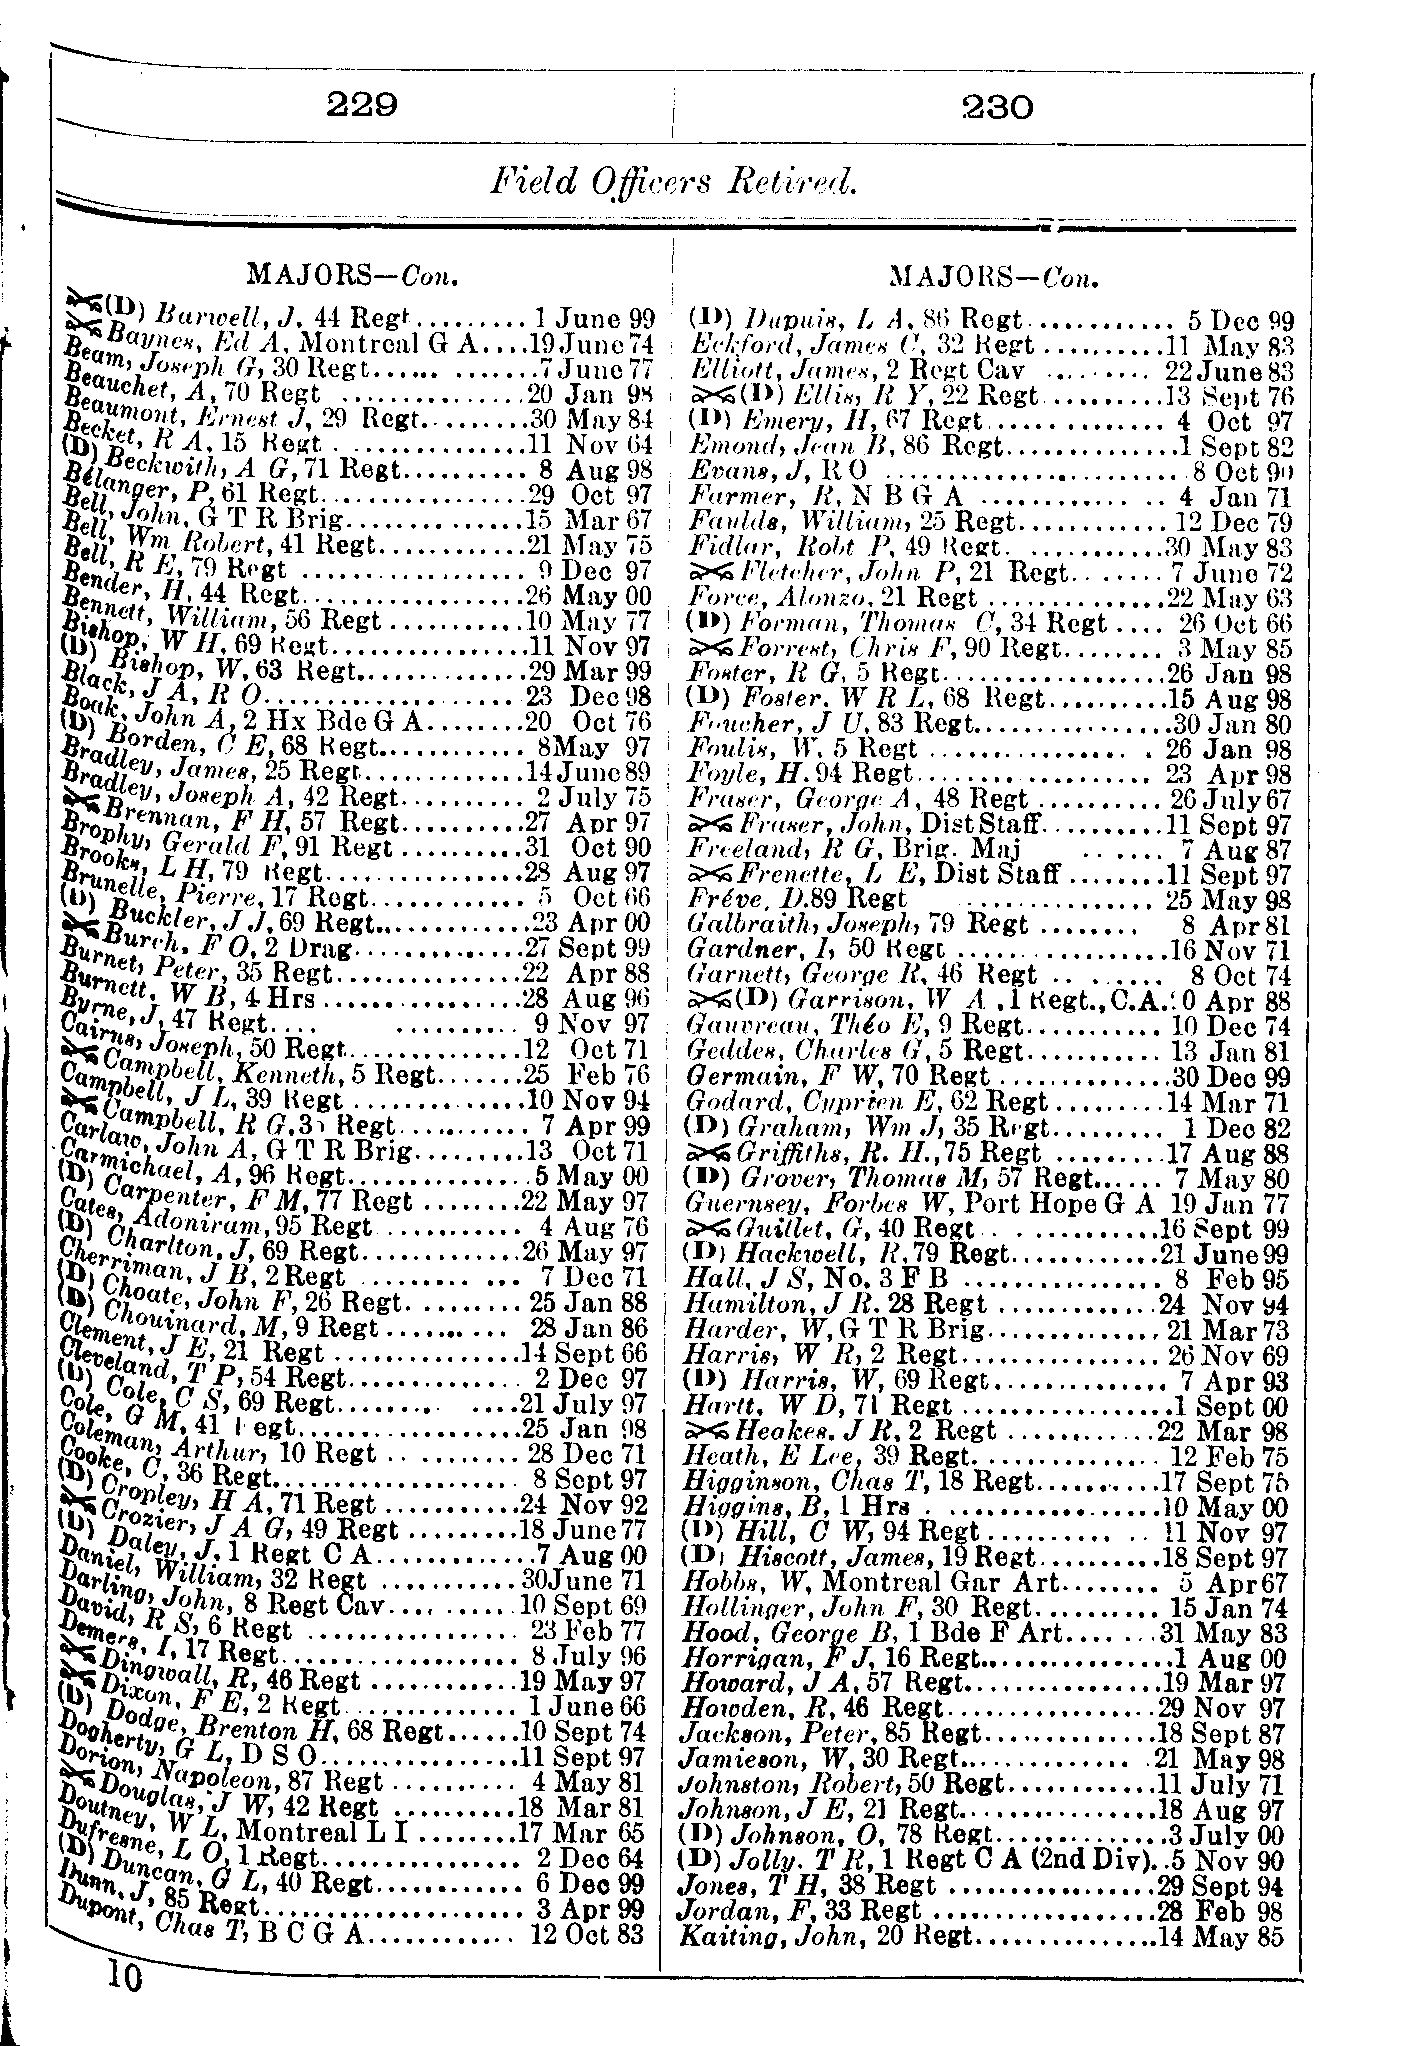 229
230
Field Officers Retired.
MAJORS—Con.
(D) Barwell, J, 44 Regt..........1 June 99
Baynes, Ed A, Montreal G A....19 June 74
Beam, Joseph G, 30 Regt...... .......7 June 77
Beauchet, A, 70 Regt ..............20 Jan 98
Beaumont, Ernest J, 29 Regt.........30 May 84
Becket, R A, 15 Regt .............11 Nov 64
(D) Beckwith, A G, 71 Regt........8 Aug 98
Bélanger, P, 61 Regt..............29 Oct 97
Bell, John, G T R Brig............15 Mar 67
Bell, Wm Robert, 41 Regt..........21 May 75
Bell, R E, 79 Regt ...............9 Dec 97
Bender, H, 44 Regt................26 May 00
Bennett, William, 56 Regt .........10 May 77
Bishop, W H, 69 Regt..............11 Nov 97
(D) Bishop, W, 63 Regt............29 Mar 99
Black, J A, R O...................23 Dec 98
Boak, John A, 2 Hx Bde G A.......20 Oct 76
(D) Borden, C E, 68 Regt...........8 May 97
Bradley, James, 25 Regt...........14 June 89
Bradley, Joseph A, 42 Regt.........2 July 75
Brennan, F H, 57 Regt.........27 Apr 97
Brophy, Gerald F, 91 Regt .........31 Oct 90
Brooks, L H, 79 Regt..............28 Aug 97
Brunelle, Pierre, 17 Regt..........5 Oct 66
(D) Buckler, J J, 69 Regt...........23 Apr 00
Burch, F O, 2 Drag............27 Sept 99
Burnet, Peter, 35 Regt............22 Apr 88
Burnett, W B, 4 Hrs ..............28 Aug 96
Byrne, J, 47 Regt.... .......... 9 Nov 97
Cairns, Joseph, 50 Regt............12 Oct 71
Campbell, Kenneth, 5 Regt.......25 Feb 76
Campbell, J L, 39 Regt ............10 Nov 94
Campbell, R G, Regt..........7 Apr 99
Carlaw, John A, G T R Brig.........13 Oct 71
Carmichael, A, 96 Regt.............5 May 00
(D) Carpenter, F M, 77 Regt .......22 May 97
Cates, Adoniram, 95 Regt ..........4 Aug 76
(D) Charlton, J, 69 Regt...........26 May 97
Cherriman, J B, 2 Regt ......... ... 7 Dec 71
(D) Choate, John F, 26 Regt.........25 Jan 88
(D) Chouinard, M, 9 Regt ...... ... 28 Jan 86
Clement, J E, 21 Regt .............14 Sept 66
Cleveland, T P, 54 Regt............2 Dec 97
(D) Cole, C S, 69 Regt........ ....21 July 97
Cole, G M, 41 Regt................25 Jan 98
Coleman, Arthur, 10 Regt .. ....... 28 Dec 71
Cooke, C, 36 Regt.................8 Sept 97
(D) Cropley, H A, 71 Regt ..........24 Nov 92
Crozier, J A G, 49 Regt .........18 June 77
(D) Daley, J, 1 Regt C A............7 Aug 00
Daniel, William, 32 Regt ...........30 June 71
Darling, John, 8 Regt Cav..........10 Sept 69
David, R S, 6 Regt ................23 Feb 77
Demers, I, 17 Regt.................8 July 96
Dingwall, R, 46 Regt ...........19 May 97
Dixon, F E, 2 Regt..............1 June 66
(D) Dodge, Brenton H, 68 Regt......10 Sept 74
Dogherty, G L, D S O...............11 Sept 97
Dorion, Napoleon, 87 Regt .......... 4 May 81
Douglas, J W, 42 Regt .........18 Mar 81
Doutney, W L, Montreal L I ........17 Mar 65
Dufresne, L O, 1 Regt............... 2 Dec 64
(D) Duncan, G L, 40 Regt........... 6 Dec 99
Dunn, J, 85 Regt................... 3 Apr 99
Dupont, Chas T, B C G A........... 12 Oct 83
10
MAJORS—Con.
(D) Dupuis, L A, 86 Regt............ 5 Dec 99
Eckford, James C, 32 Regt ..........11 May 83
Elliott, James, 2 Regt Cav ......... 22 June 83
(D) Ellis, R Y, 22 Regt..........13 Sept 76
(D) Emery, H, 67 Regt............... 4 Oct 97
Emond, Jean B, 86 Regt..............1 Sept 82
Evans, J, R O ......................8 Oct 90
Farmer, R, N B G A ............ .. 4 Jan 71
Faulds, William, 25 Regt............ 12 Dec 79
Fidlar, Robt P, 49 Regt. ...........30 May 83
Fletcher, John P, 21 Regt....... 7 June 72
Force, Alonzo, 21 Regt .............22 May 63
(D) Forman, Thomas C, 34 Regt .... 26 Oct 66
Forrest, Chris F, 90 Regt........ 3 May 85
Foster, R G, 5 Regt.................26 Jan 98
(D) Foster, W R L, 68 Regt.........15 Aug 98
Foucher, J U, 83 Regt...............30 Jan 80
Foulis, W, 5 Regt .............. . 26 Jan 98
Foyle, H. 94 Regt.................. 23 Apr 98
Fraser, George A, 48 Regt .......... 26 July 67
Fraser, John, Dist Staff..........11 Sept 97
Freeland, R G, Brig. Maj ...... 7 Aug 87
Frenette, L E, Dist Staff ........11 Sept 97
Fréve, D. 89 Regt .............. 25 May 98
Galbraith, Joseph, 79 Regt ........ 8 Apr 81
Gardner, I, 50 Regt ................16 Nov 71
Garnett, George R, 46 Regt .. ...... 8 Oct 74
(D) Garrison, W A, 1 Regt., C.A. 0 Apr 88
Gauvreau, Théo E, 9 Regt........... 10 Dec 74
Geddes, Charles G, 5 Regt........... 13 Jan 81
Germain, F W, 70 Regt ..............30 Dec 99
Godard, Cyprien E, 62 Regt .........14 Mar 71
(D) Graham, Wm J, 35 Regt......... 1 Dec 82
Griffiths, R. H., 75 Regt .........17 Aug 88
(D) Grover, Thomas M, 57 Regt...... 7 May 80
Guernsey, Forbes W, Port Hope G A 19 Jan 77
Guillet, G, 40 Regt.. . ..........16 Sept 99
(D) Hackwell, R, 79 Regt...........21 June 99
Hall, J S, No. 3 F B ................ 8 Feb 95
Hamilton, J R. 28 Regt .............24 Nov 94
Harder, W, G T R Brig..............21 Mar 73
Harris, W R, 2 Regt................ 26 Nov 69
(D) Harris, W, 69 Regt.............. 7 Apr 93
Hartt, W D, 71 Regt .................1 Sept 00
Heakes, J R, 2 Regt .............22 Mar 98
Heath, E Lee, 39 Regt.............. 12 Feb 75
Higginson, Chas T, 18 Regt..........17 Sept 75
Higgins, B, 1 Hrs . ................10 May 00
(D) Hill, C W, 94 Regt........... .. 11 Nov 97
(D) Hiscott, James, 19 Regt..........18 Sept 97
Hobbs, W, Montreal Gar Art........ 5 Apr 67
Hollinger, John F, 30 Regt.......... 15 Jan 74
Hood, George B, 1 Bde F Art.... ...31 May 83
Horrigan, F J, 16 Regt...............1 Aug 00
Howard, J A, 57 Regt................19 Mar 97
Howden, R, 46 Regt.................29 Nov 97
Jackson, Peter, 85 Regt.............18 Sept 87
Jamieson, W, 30 Regt...............21 May 98
Johnston, Robert, 50 Regt............11 July 71
Johnson, J E, 21 Regt...............18 Aug 97
(D) Johnson, O, 78 Regt..............3 July 00
(D) Jolly. T R, 1 Regt C A (2nd Div)..5 Nov 90
Jones, T H, 38 Regt ................29 Sept 94
Jordan, F, 33 Regt .................28 Feb 98
Kaiting, John, 20 Regt..............14 May 85